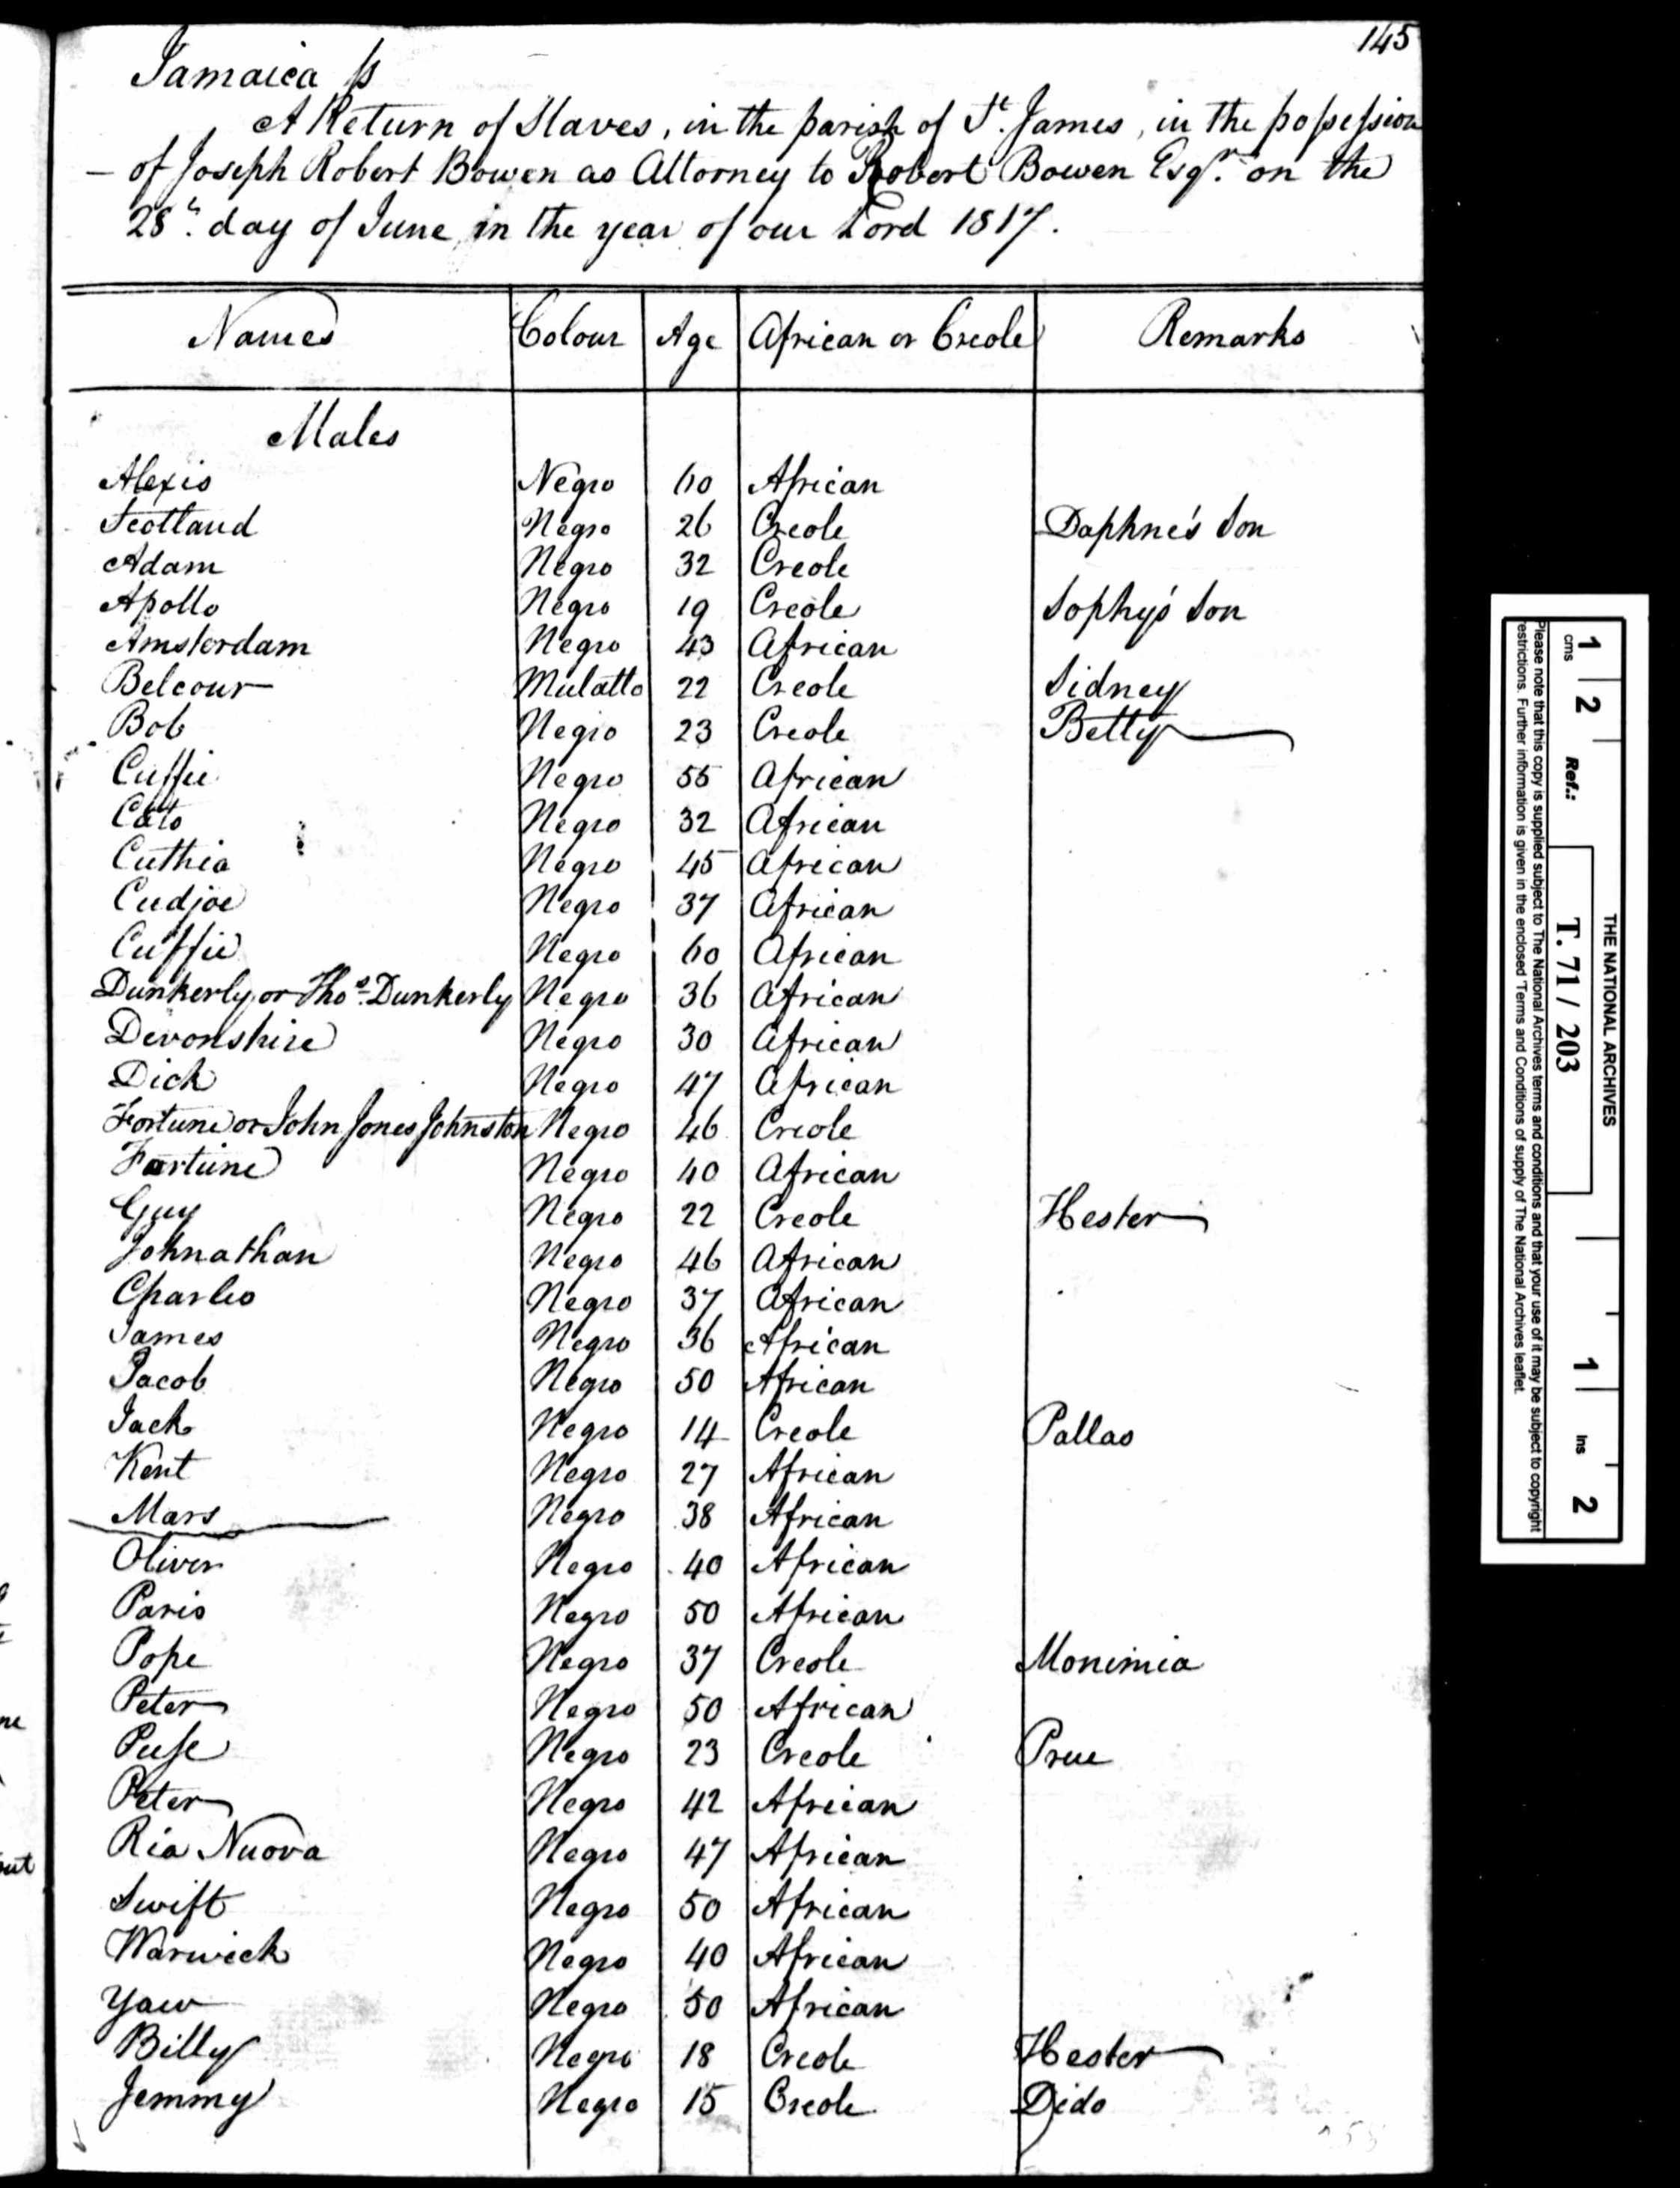 145
Jamaica ss
A Return of Slaves, in the parish of St. James, in the possession
of Joseph Robert Bowen as Attorney to Robert Bowen Esqr. on the
28th. day of June in the year of our Lord 1817.
Names Colour Age African or Creole Remarks
Males
Alexis Negro 60 African
Scotland Negro 26 Creole Daphne's Son
Adam Negro 32 Creole
Apollo Negro 19 Creole Sophy's Son
Amsterdam Negro 43 African
Belcour Mulatto 22 Creole Sidney
Bob Negro 23 Creole Betty
Cuffie Negro 55 African
Cato Negro 32 African
Cuthia Negro 45 African
Cudjoe Negro 37 African
Cuffie Negro 60 African
Dunkerly or Thos. Dunkerly Negro 36 African
Devonshire Negro 30 African
Dick Negro 47 African
Fortune or John Jones Johnston Negro 46 Creole
Fortune Negro 40 African
Guy Negro 22 Creole Hester
Johnathan Negro 46 African
Charles Negro 37 African
James Negro 36 African
Jacob Negro 50 African
Jack Negro 14 Creole Pallas
Kent Negro 27 African
Mars Negro 38 African
Oliver Negro 40 African
Paris Negro 50 African
Pope Negro 37 Creole Monimia
Peter Negro 50 African
Negro 23 Creole Prue
Peter Negro 42 African
Ria Nuova Negro 47 African
Swift Negro 50 African
Warwick Negro 40 African
Yaw Negro 50 African
Billy Negro 18 Creole Hester
Jemmy Negro 15 Creole Dido
THE NATIONAL ARCHIVES
1 2 1 2
cms Ref.: T. 71 / 203 Ins
Please note that this copy is supplied subject to The National Archives terms and conditions and that your use of it may be subject to copyright
restrictions. Further information is given in the enclosed 'Terms and Conditions of supply of The National Archives leaflet.